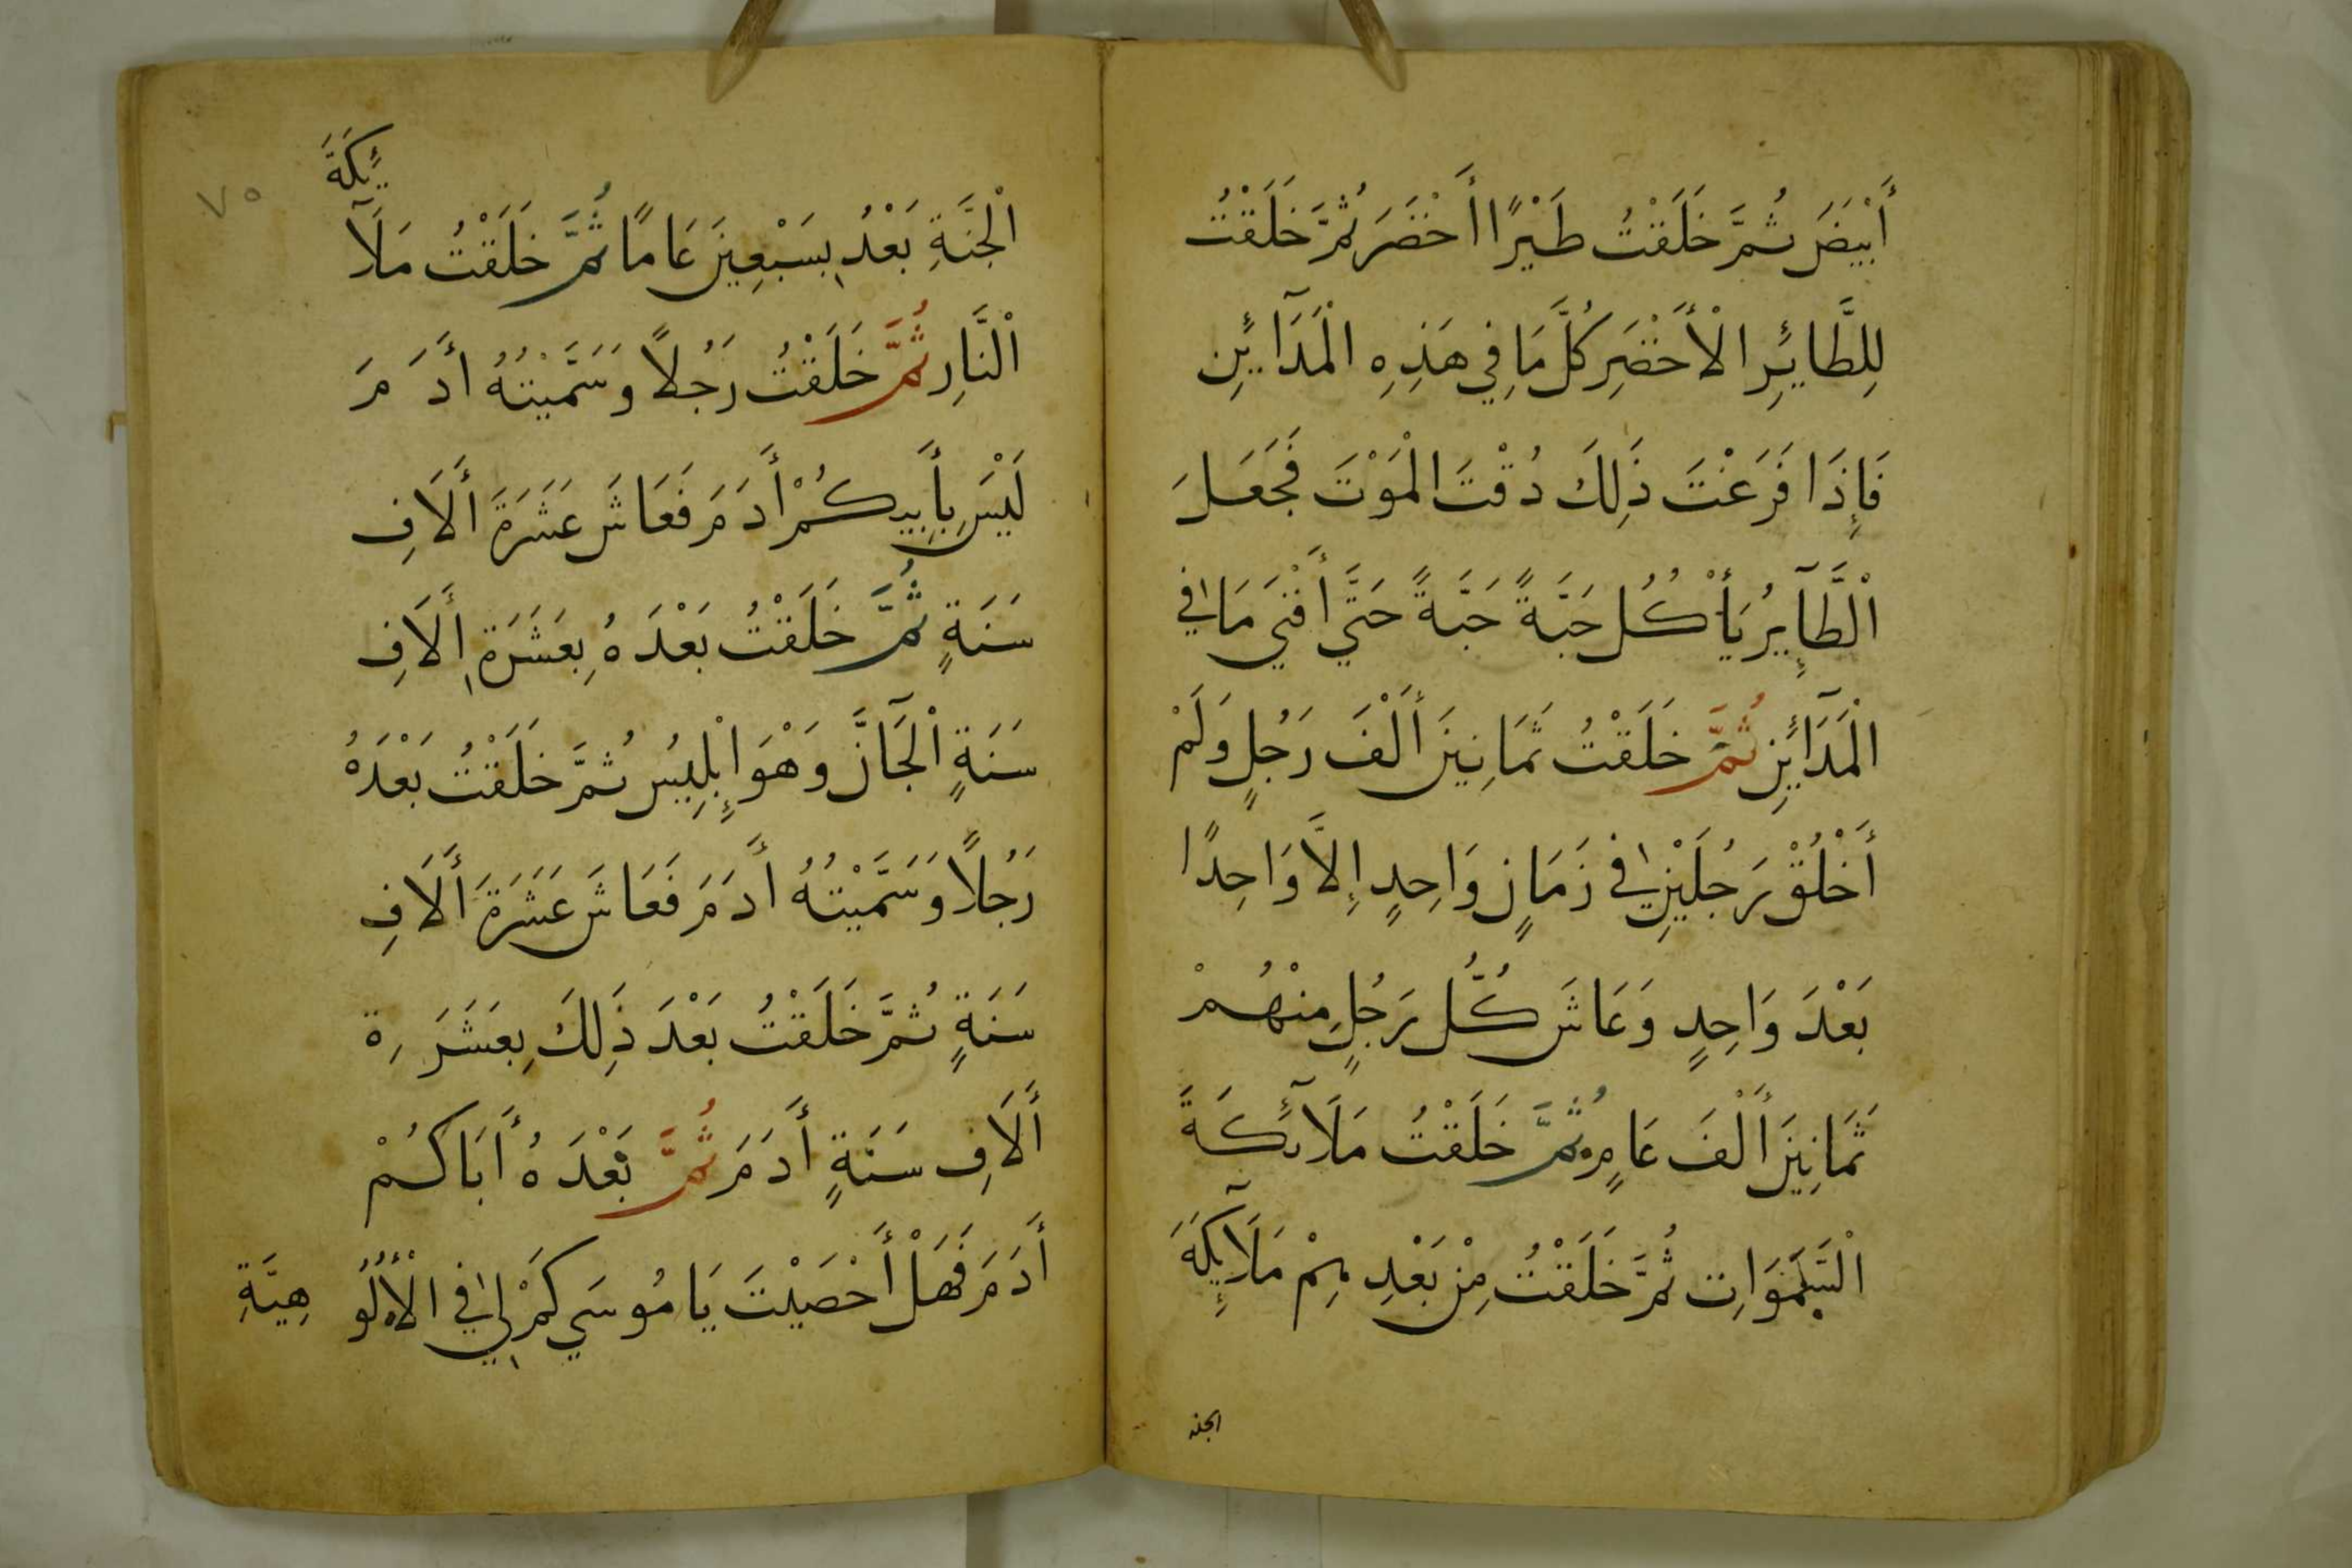 أَبْيَضَ ثُمَّ خَلَقْتُ طَيْرًا أَخْضَرَ ثُمَّ خَلَقْتُ
لِلطَّائِرِ الْأَخْضَرِ كُلَّ مَا فِي هَذِهِ الْمَدَآئِنِ
فَإِذَا فَرَغْتَ ذَلِكَ ذُقْتَ الْمَوْتَ فَجَعَلَ
الْطَّآيِرُ يَأْكُل حَبَّةً حَبَّةً حَتَّي أَفْنَي مَا فِي
الْمَدَآئِنِ ثُمَّ خَلَقْتُ ثَمَانِينَ أَلْفَ رَجُلٍ وَلَمْ
أَخْلُقْ رَجُلَيْنِ فِي زَمَانٍ وَاحِدٍ إِلاَّ وَاحِدًا
بَعْدَ وَاحِدٍ وَعَاشَ كُلُّ رَجُلٍ مِنْهُمْ
ثَمَانِينَ أَلْفَ عَامٍ ثُمَّ خَلَقْتُ مَلَآئِكَةَ
الْسَّمَوَاتِ ثُمَّ خَلَقْتُ مِنْ بَعْدِهِمْ مَلَآئِكَةَ
الجنة
٧٥
الْجَنَّةِ بَعْدُ بِسَبْعِينَ عَامًا ثُمَّ خَلَقْتُ مَلَآئِكَةَ
الْنَّارِ ثُمَّ خَلَقْتُ رَجُلاً وَسَمَّيْتُهُ أَدَمَ
لَيْسَ بِأَبِيكُمْ أَدَمَ فَعَاشَ عَشَرَةَ أَلَافِ
سَنَةٍ ثُمَّ خَلَقْتُ بَعْدَهُ بِعَشَرَةِ أَلَافِ
سَنَةٍ الْجَآنَّ وَهْوَ إِبْلِيسُ ثُمَّ خَلَقْتُ بَعْدَهُ
رَجُلاً وَسَمَّيْتُهُ أَدَمَ فَعَاشَ عَشَرَةَ أَلَافِ
سَنَةٍ ثُمَّ خَلَقْتُ بَعْدَ ذَلِكَ بِعَشَرَةِ
أَلَافِ سَنَةٍ أَدَمَ ثُمَّ بَعْدَهُ أَبَاكُمْ
أَدَمَ فَهَلْ أَحْصَيْتَ يَا مُوسَي كَمْ لِي فِي الْأُلُوهِيَّةِ